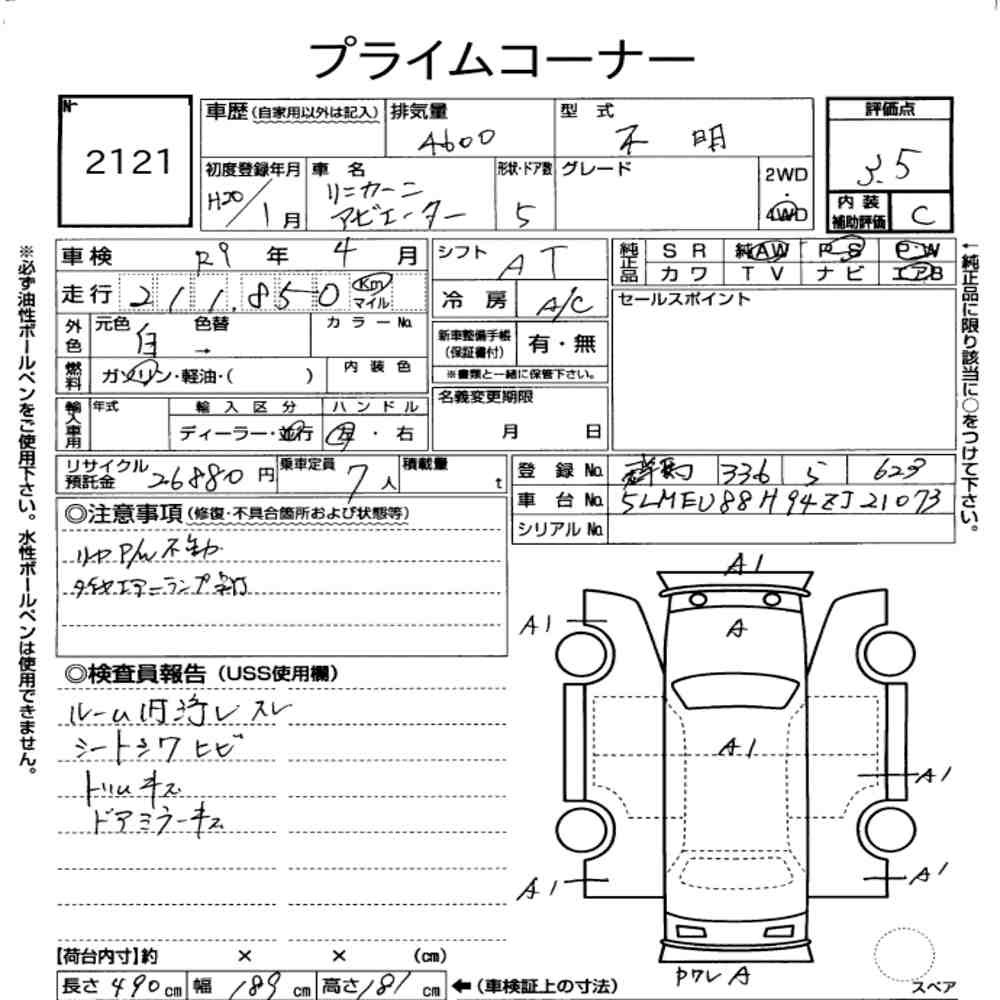 プライムコーナー
No.
2121
車歴 (自家用以外は記入)
排気量
4600
型 式
不 明
評価点
3.5
初度登録年月
H20/1月
車 名
リンカーン
アビエーター
形状・ドア数
5
グレード
2WD
・
4WD
内 装
補助評価
C
車検 R9 年 4 月
シフト AT
純正品
SR 純AW PS PW
カワ TV ナビ エアB
走行 211.850 Km マイル
冷 房 A/C
セールスポイント
外色
元色 白 色替 →
カラーNo.
新車整備手帳
(保証書付)
有・無
※書類と一緒に保管下さい。
燃料
ガソリン・軽油・( )
内 装 色
名義変更期限
月 日
輸入車用
年式
輸 入 区 分
ハ ン ド ル
ディーラー・並行
左 ・ 右
リサイクル
預託金
26880 円
乗車定員 7 人
積載量 t
登 録 No. 336 5 623
車 台 No. 5LMEU88H94ZJ21073
シリアル No.
◎注意事項 (修復・不具合箇所および状態等)
リヤP/W不動
タイヤエアーランプ点灯
◎検査員報告 (USS使用欄)
ルーム内 スレ
シートシワ ヒビ
トリムキズ
ドアミラーキズ
A1
A
A1
A1
A1
A1
A1
ワレ A
スペア
【荷台内寸】約 × × (cm)
長さ 490 cm 幅 189 cm 高さ 181 cm ←(車検証上の寸法)
※必ず油性ボールペンをご使用下さい。水性ボールペンは使用できません。
←純正品に限り該当に○をつけて下さい。